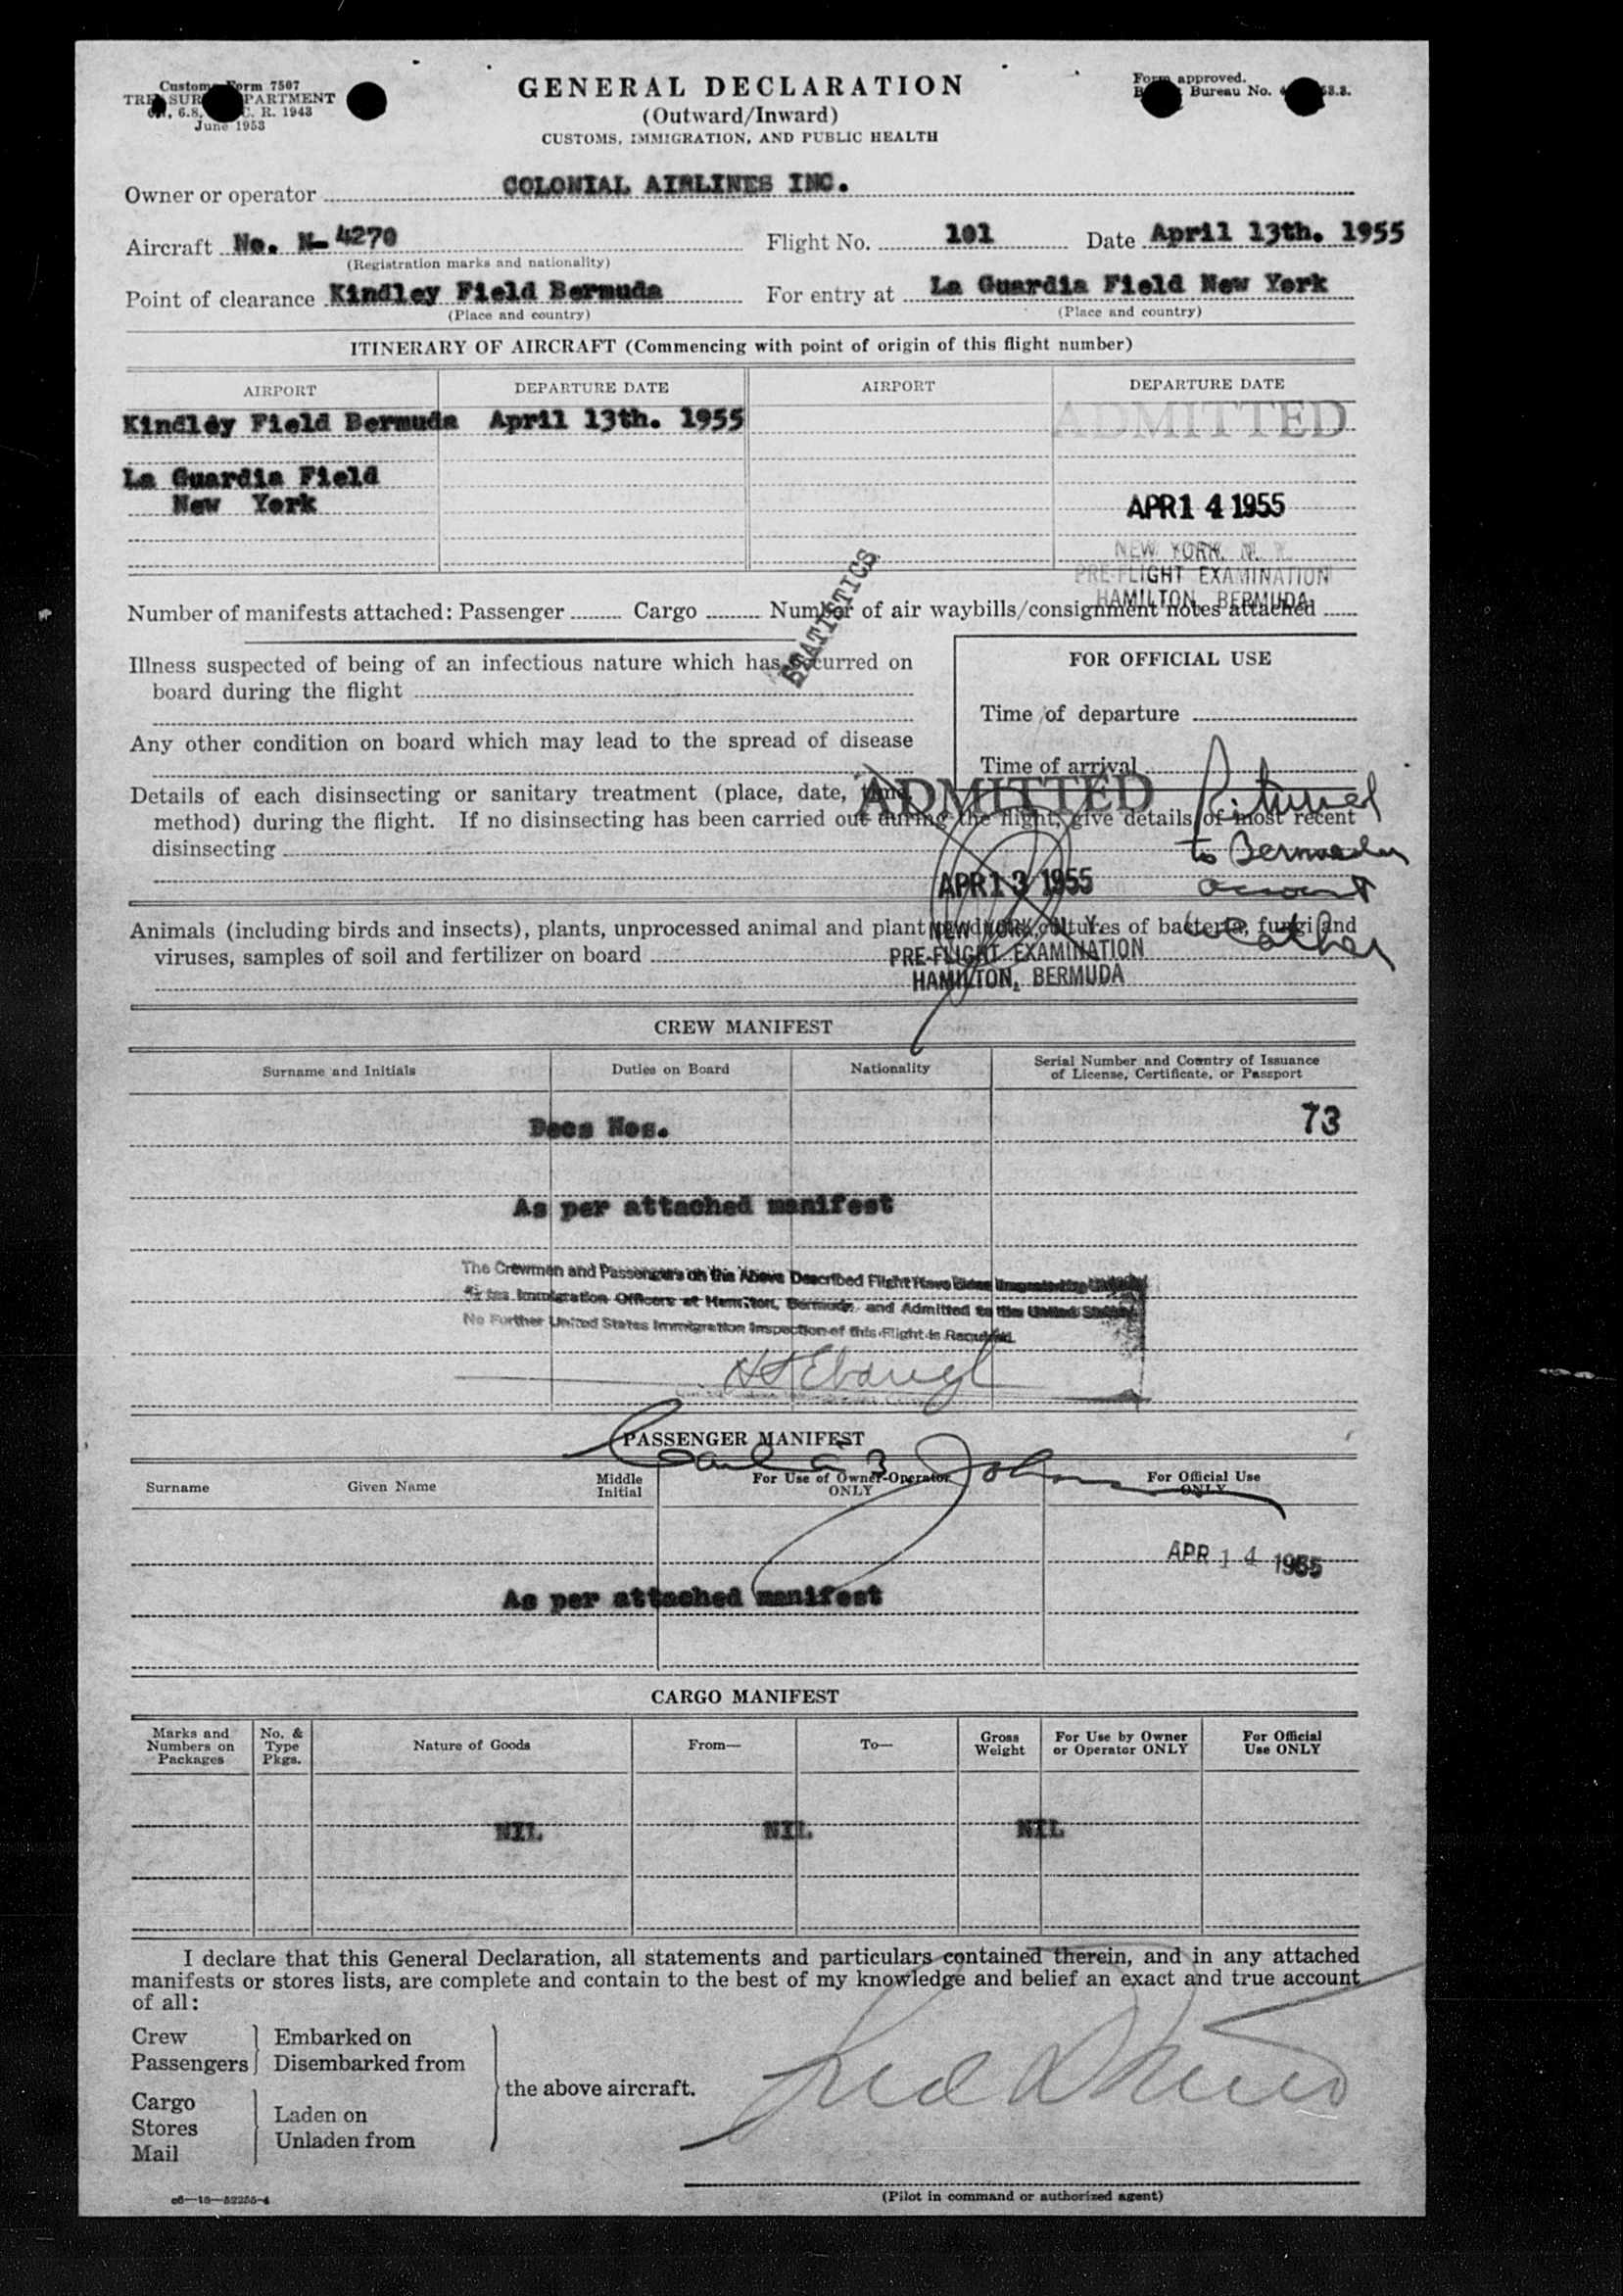 Customs Form 7507
TREASURY DEPARTMENT
6.8, C. R. 1943
June 1953
GENERAL DECLARATION
(Outward/Inward)
CUSTOMS, IMMIGRATION, AND PUBLIC HEALTH
Form approved.
Bureau No.
Owner or operator COLONIAL AIRLINES INC.
Aircraft No. N-4270 Flight No. 101 Date April 13th. 1955
(Registration marks and nationality)
Point of clearance Kindley Field Bermuda For entry at La Guardia Field New York
(Place and country) (Place and country)
ITINERARY OF AIRCRAFT (Commencing with point of origin of this flight number)
AIRPORT DEPARTURE DATE AIRPORT DEPARTURE DATE
Kindley Field Bermuda April 13th. 1955 ADMITTED
La Guardia Field
New York APR 14 1955
NEW YORK, N. Y.
PRE-FLIGHT EXAMINATION
HAMILTON, BERMUDA
STATISTICS
Number of manifests attached: Passenger Cargo Number of air waybills/consignment notes attached
Illness suspected of being of an infectious nature which has occurred on
board during the flight
FOR OFFICIAL USE
Time of departure
Any other condition on board which may lead to the spread of disease
Time of arrival
ADMITTED
Details of each disinsecting or sanitary treatment (place, date, time,
method) during the flight. If no disinsecting has been carried out during the flight, give details of most recent
disinsecting
Returned
to Bermuda
account
weather
APR 13 1955
NEW YORK, N. Y.
PRE-FLIGHT EXAMINATION
HAMILTON, BERMUDA
Animals (including birds and insects), plants, unprocessed animal and plant products, cultures of bacteria, fungi and
viruses, samples of soil and fertilizer on board
CREW MANIFEST
Surname and Initials Duties on Board Nationality Serial Number and Country of Issuance
of License, Certificate, or Passport
Decs Nos. 73
As per attached manifest
The Crewmen and Passengers on the Above Described Flight Have Been Inspected by United
States Immigration Officers at Hamilton, Bermuda, and Admitted to the United States.
No Further United States Immigration Inspection of this Flight is Required.
PASSENGER MANIFEST
Surname Given Name Middle
Initial For Use of Owner-Operator
ONLY For Official Use
ONLY
APR 14 1955
As per attached manifest
CARGO MANIFEST
Marks and
Numbers on
Packages No. &
Type
Pkgs. Nature of Goods From— To— Gross
Weight For Use by Owner
or Operator ONLY For Official
Use ONLY
NIL NIL NIL
I declare that this General Declaration, all statements and particulars contained therein, and in any attached
manifests or stores lists, are complete and contain to the best of my knowledge and belief an exact and true account
of all:
Crew Embarked on
Passengers Disembarked from
the above aircraft.
Cargo
Stores Laden on
Mail Unladen from
c6—16—52255-4
(Pilot in command or authorized agent)